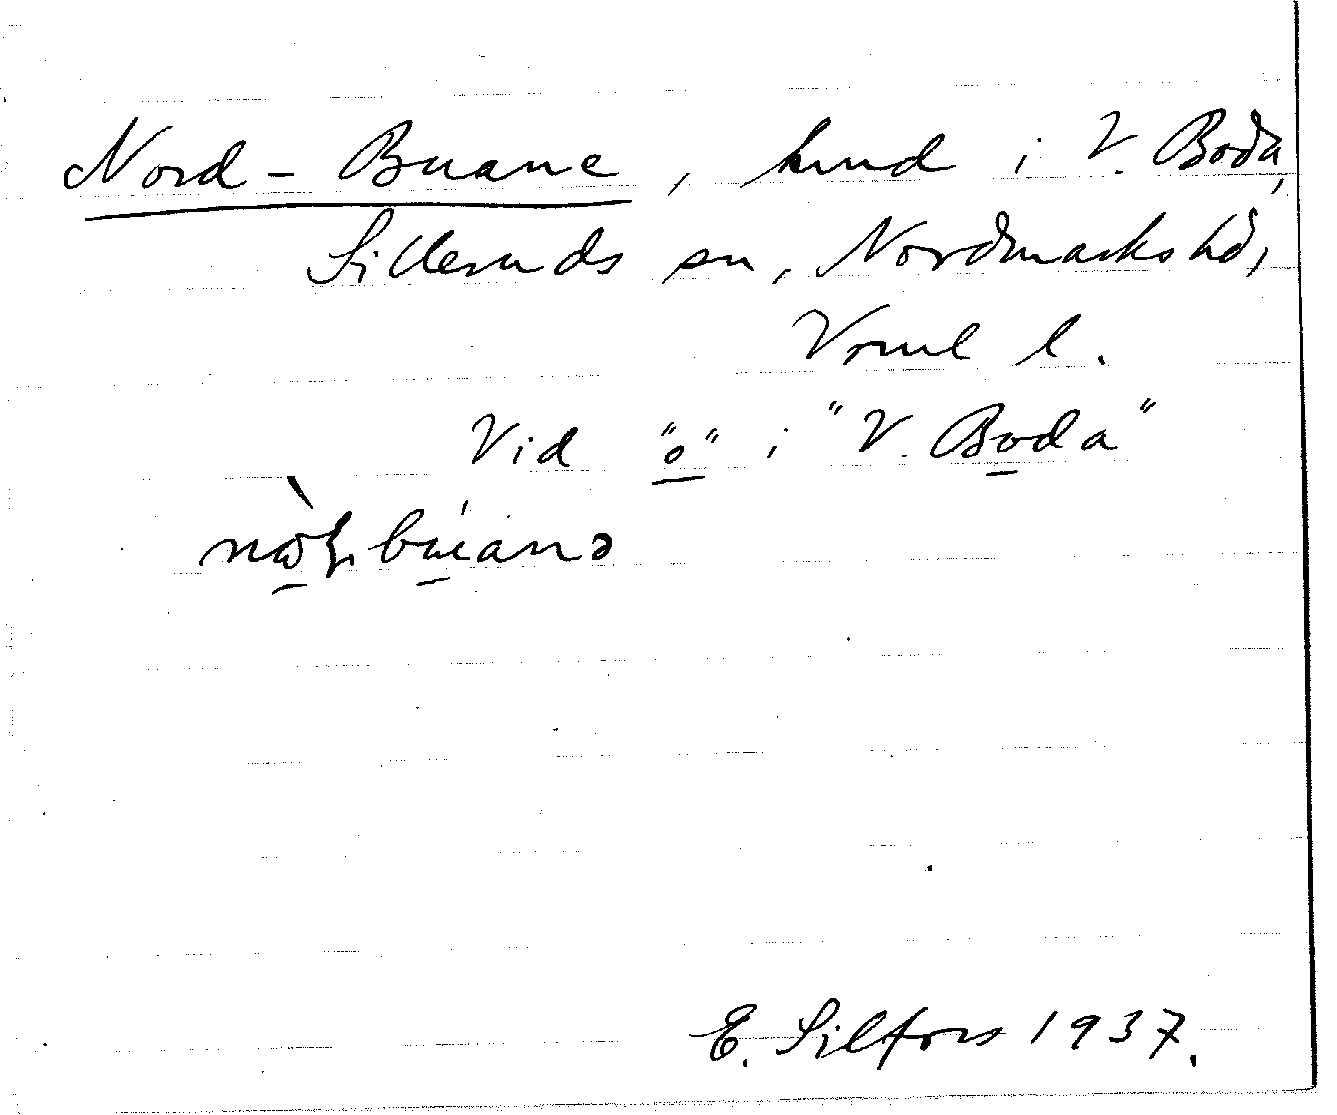 Nord-Buane, hmd i V. Boda,
Silleruds sn, Nordmarks hd,
Vrml l.
Vid "o" i "V. Boda"
E. Silfors 1937.